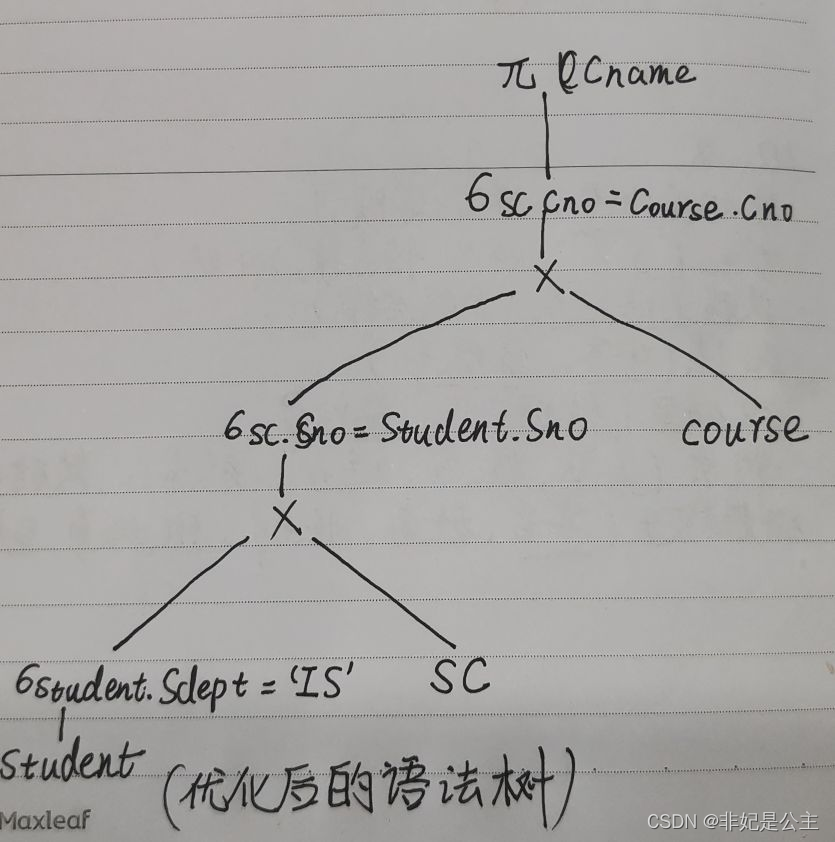 π CCname
6 SC.Cno = Course.Cno
X
6 SC.Sno = Student.Sno
course
X
6 Student.Sdept = 'IS'
SC
Student
(优化后的语法树)
Maxleaf
CSDN @非妃是公主